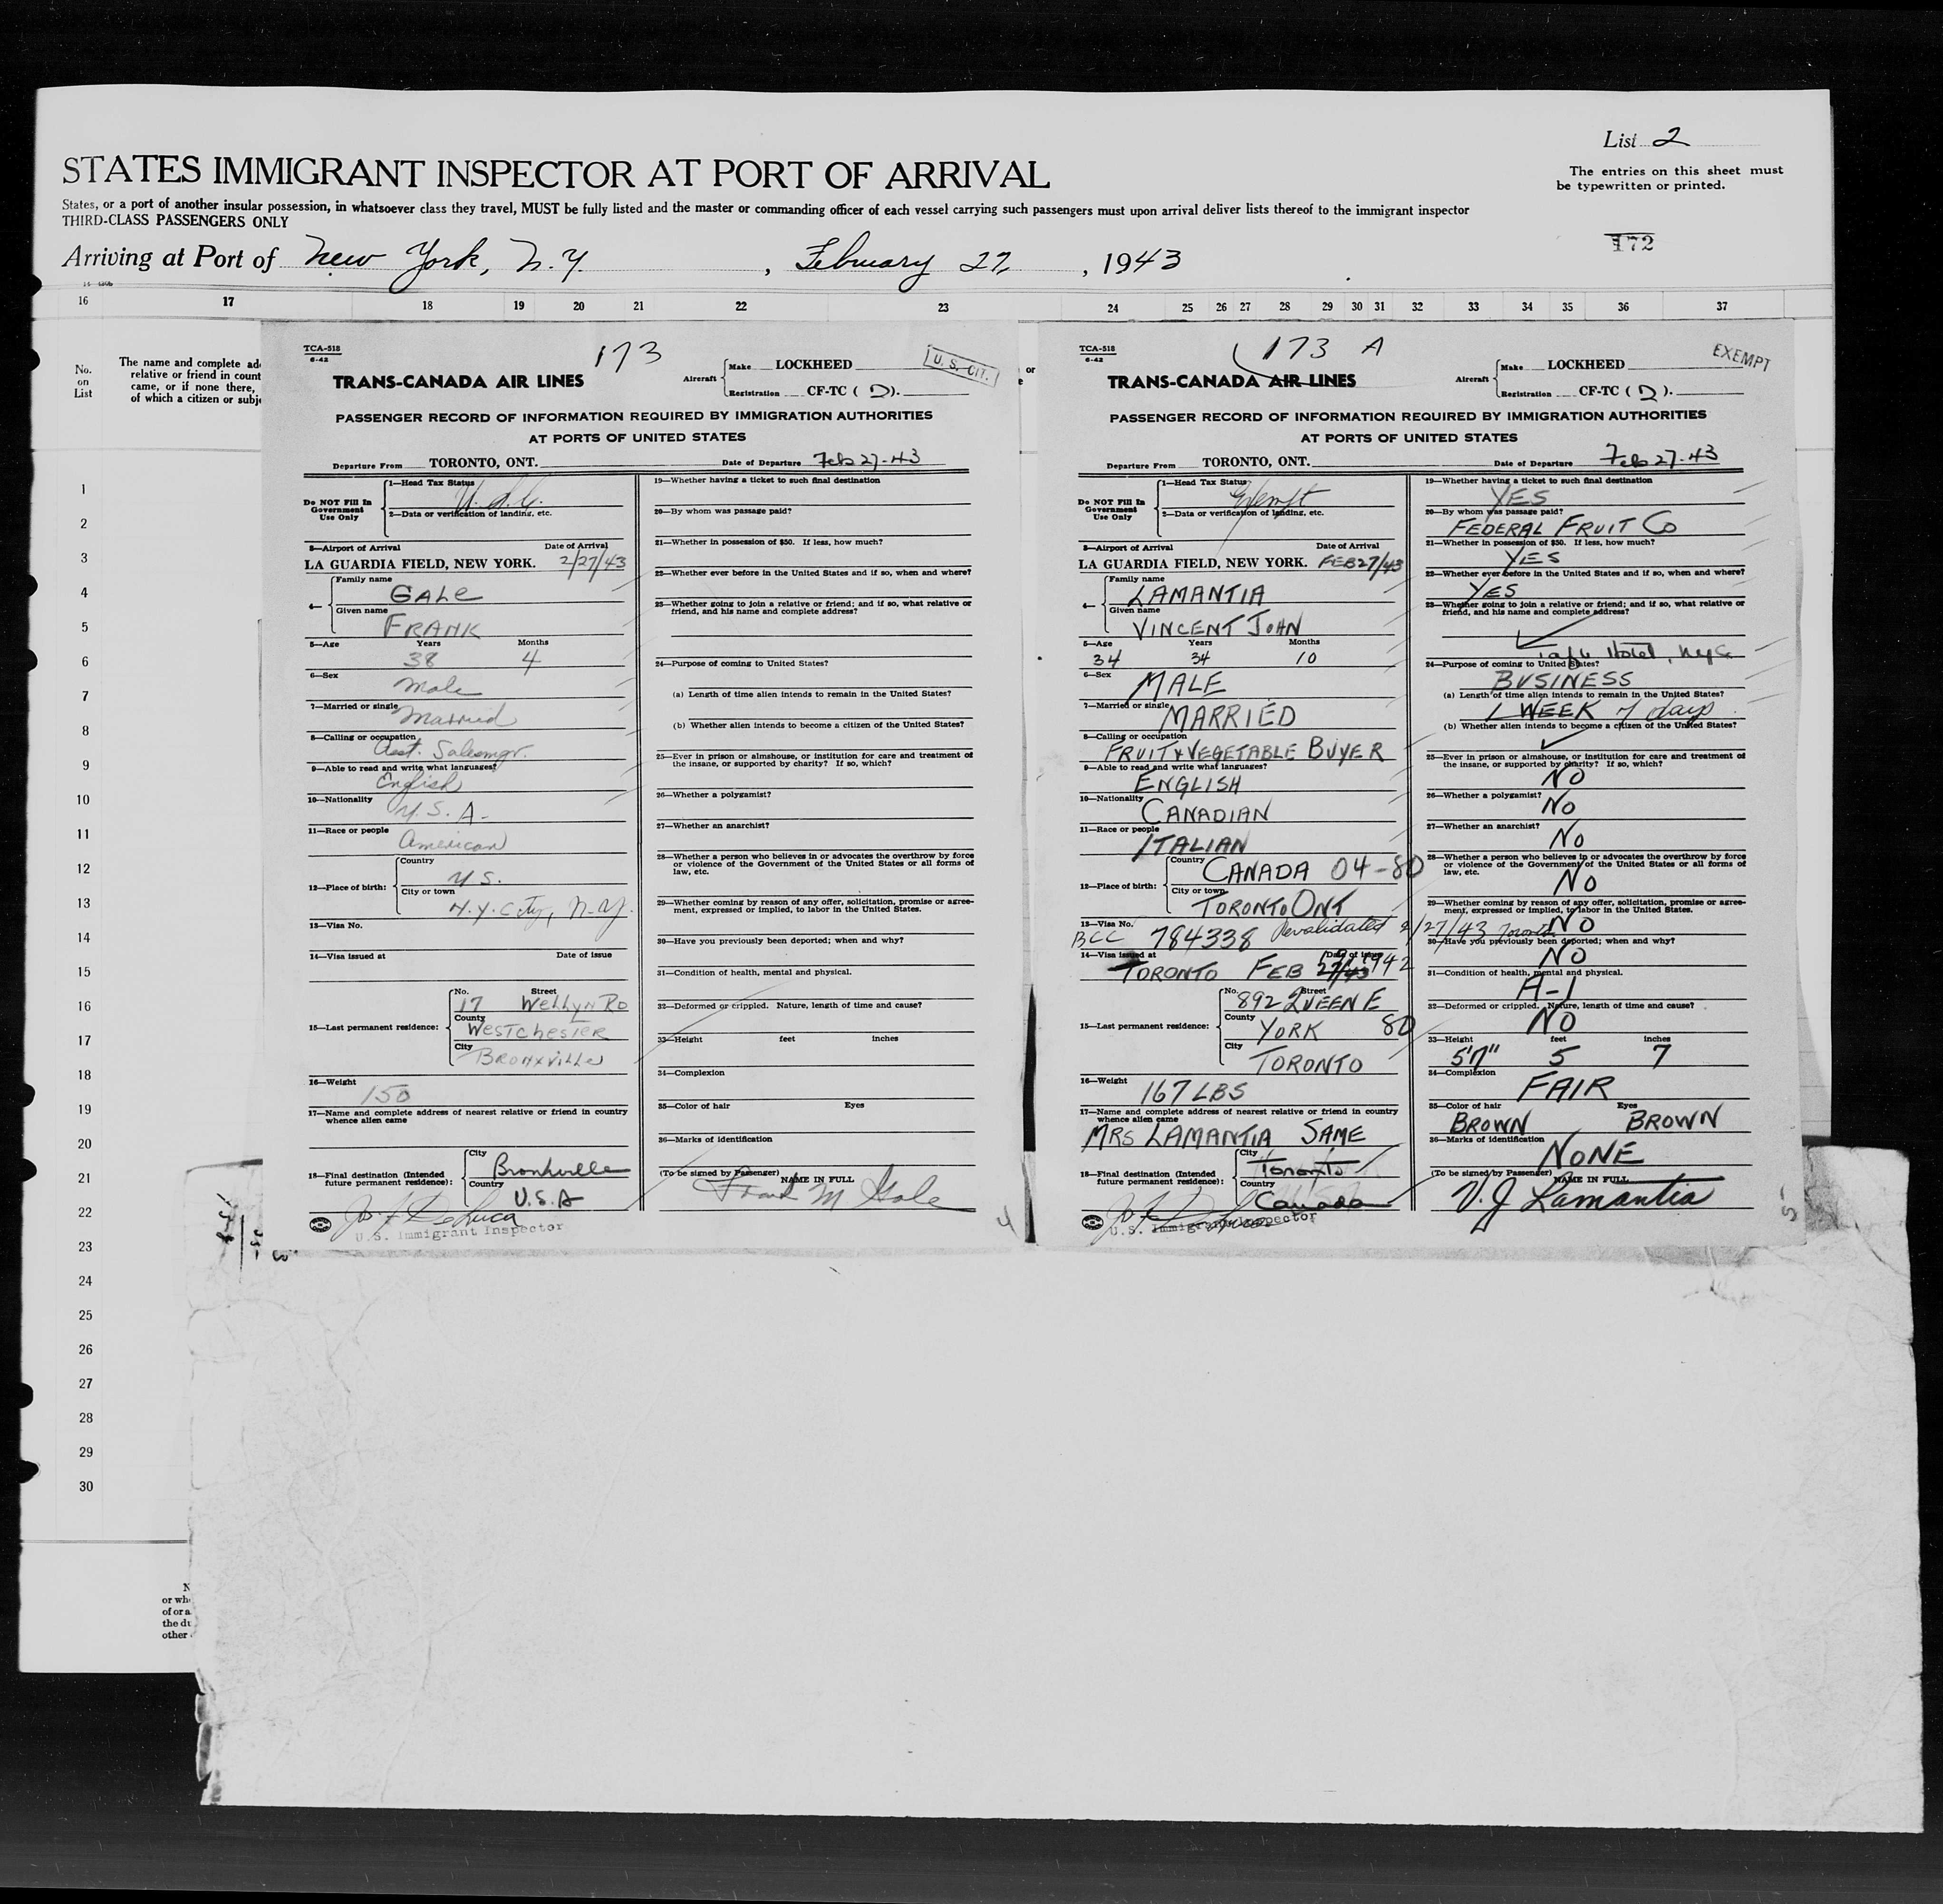 List 2
STATES IMMIGRANT INSPECTOR AT PORT OF ARRIVAL
The entries on this sheet must
be typewritten or printed.
States, or a port of another insular possession, in whatsoever class they travel, MUST be fully listed and the master or commanding officer of each vessel carrying such passengers must upon arrival deliver lists thereof to the immigrant inspector
THIRD-CLASS PASSENGERS ONLY
172
Arriving at Port of New York, N.Y. , February 27, , 1943
16 17 18 19 20 21 22 23 24 25 26 27 28 29 30 31 32 33 34 35 36 37
No.
on
List
The name and complete add
relative or friend in count
came, or if none there,
of which a citizen or subje
or
e
1
2
3
4
5
6
7
8
9
10
11
12
13
14
15
16
17
18
19
20
21
22
23
24
25
26
27
28
29
30
N
or wh
of or a
the du
other
TCA-518
6-42
173
U. S. CIT.
TRANS-CANADA AIR LINES
Aircraft Make LOCKHEED
Registration CF-TC ( D ).
PASSENGER RECORD OF INFORMATION REQUIRED BY IMMIGRATION AUTHORITIES
AT PORTS OF UNITED STATES
Departure From TORONTO, ONT. Date of Departure Feb 27-43
Do NOT Fill In
Government
Use Only
1—Head Tax Status
2—Data or verification of landing, etc.
3—Airport of Arrival Date of Arrival
LA GUARDIA FIELD, NEW YORK. 2/27/43
4— Family name
GALE
Given name
FRANK
5—Age Years Months
38 4
6—Sex
Male
7—Married or single
Married
8—Calling or occupation
Asst. Salesmgr.
9—Able to read and write what languages?
English
10—Nationality
U.S.A.
11—Race or people
American
12—Place of birth: Country
U.S.
City or town
N.Y. City, N.Y.
13—Visa No.
14—Visa issued at Date of issue
15—Last permanent residence: No. Street
17 Wellyn Rd
County
Westchester
City
Bronxville
16—Weight
150
17—Name and complete address of nearest relative or friend in country
whence alien came
18—Final destination (Intended
future permanent residence): City
Bronxville
Country
U.S.A
U.S. Immigrant Inspector
19—Whether having a ticket to such final destination
20—By whom was passage paid?
21—Whether in possession of $50. If less, how much?
22—Whether ever before in the United States and if so, when and where?
23—Whether going to join a relative or friend; and if so, what relative or
friend, and his name and complete address?
24—Purpose of coming to United States?
(a) Length of time alien intends to remain in the United States?
(b) Whether alien intends to become a citizen of the United States?
25—Ever in prison or almshouse, or institution for care and treatment of
the insane, or supported by charity? If so, which?
26—Whether a polygamist?
27—Whether an anarchist?
28—Whether a person who believes in or advocates the overthrow by force
or violence of the Government of the United States or all forms of
law, etc.
29—Whether coming by reason of any offer, solicitation, promise or agree-
ment, expressed or implied, to labor in the United States.
30—Have you previously been deported; when and why?
31—Condition of health, mental and physical.
32—Deformed or crippled. Nature, length of time and cause?
33—Height feet inches
34—Complexion
35—Color of hair Eyes
36—Marks of identification
(To be signed by Passenger) NAME IN FULL
Frank M Gale
4
TCA-518
6-42
173 A
EXEMPT
TRANS-CANADA AIR LINES
Aircraft Make LOCKHEED
Registration CF-TC ( D ).
PASSENGER RECORD OF INFORMATION REQUIRED BY IMMIGRATION AUTHORITIES
AT PORTS OF UNITED STATES
Departure From TORONTO, ONT. Date of Departure Feb 27-43
Do NOT Fill In
Government
Use Only
1—Head Tax Status
Exempt
2—Data or verification of landing, etc.
3—Airport of Arrival Date of Arrival
LA GUARDIA FIELD, NEW YORK. FEB 27/43
4— Family name
LAMANTIA
Given name
VINCENT JOHN
5—Age Years Months
34 34 10
6—Sex
MALE
7—Married or single
MARRIED
8—Calling or occupation
FRUIT & VEGETABLE BUYER
9—Able to read and write what languages?
ENGLISH
10—Nationality
CANADIAN
11—Race or people
ITALIAN
12—Place of birth: Country
CANADA 04-80
City or town
TORONTO ONT
13—Visa No.
BCC 784338 Revalidated 2/27/43 Toronto
14—Visa issued at Date of issue
TORONTO FEB 27/43 1942
15—Last permanent residence: No. Street
892 QUEEN E
County
YORK 80
City
TORONTO
16—Weight
167 LBS
17—Name and complete address of nearest relative or friend in country
whence alien came
MRS LAMANTIA SAME
18—Final destination (Intended
future permanent residence): City
Toronto
Country
Canada
U.S. Immigrant Inspector
19—Whether having a ticket to such final destination
YES
20—By whom was passage paid?
FEDERAL FRUIT CO
21—Whether in possession of $50. If less, how much?
YES
22—Whether ever before in the United States and if so, when and where?
YES
23—Whether going to join a relative or friend; and if so, what relative or
friend, and his name and complete address?
Hotel, NYC
24—Purpose of coming to United States?
BUSINESS
(a) Length of time alien intends to remain in the United States?
1 WEEK 7 days
(b) Whether alien intends to become a citizen of the United States?
25—Ever in prison or almshouse, or institution for care and treatment of
the insane, or supported by charity? If so, which?
NO
26—Whether a polygamist?
NO
27—Whether an anarchist?
NO
28—Whether a person who believes in or advocates the overthrow by force
or violence of the Government of the United States or all forms of
law, etc.
NO
29—Whether coming by reason of any offer, solicitation, promise or agree-
ment, expressed or implied, to labor in the United States.
NO
30—Have you previously been deported; when and why?
NO
31—Condition of health, mental and physical.
A-1
32—Deformed or crippled. Nature, length of time and cause?
NO
33—Height feet inches
5'7" 5 7
34—Complexion
FAIR
35—Color of hair Eyes
BROWN BROWN
36—Marks of identification
NONE
(To be signed by Passenger) NAME IN FULL
V. J. Lamantia
5